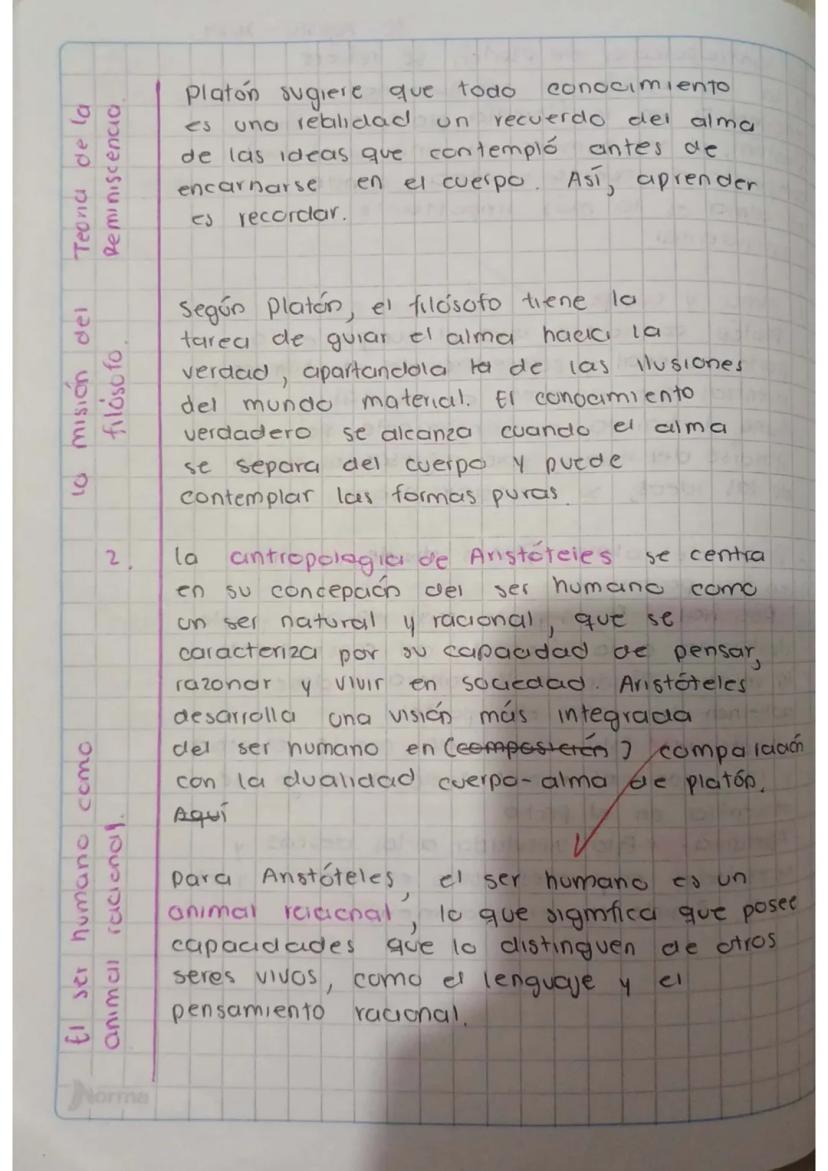 Teoria de la
Reminiscencia.
Platón sugiere que todo conocimiento
es una realidad un recuerdo del alma
de las ideas que contempló antes de
encarnarse en el cuerpo. Así, aprender
es recordar.
la misión del
filósofo.
según platón, el filósofo tiene la
tarea de guiar el alma hacia la
verdad, apartandola la de las ilusiones
del mundo material. El conocimiento
verdadero se alcanza cuando el alma
se separa del cuerpo y puede
contemplar las formas puras.
2. la antropologia de Aristóteles se centra
en su concepción del ser humano como
un ser natural y racional, que se
caracteriza por su capacidad de pensar,
razonar y vivir en sociedad. Aristóteles
desarrolla una visión más integrada
del ser humano en ( ) comparación
con la dualidad cuerpo-alma de platón.
Aquí
El ser humano como
animal racional.
para Aristóteles, el ser humano es un
animal racional, lo que significa que posee
capacidades que lo distinguen de otros
seres vivos, como el lenguaje y el
pensamiento racional.
Norma